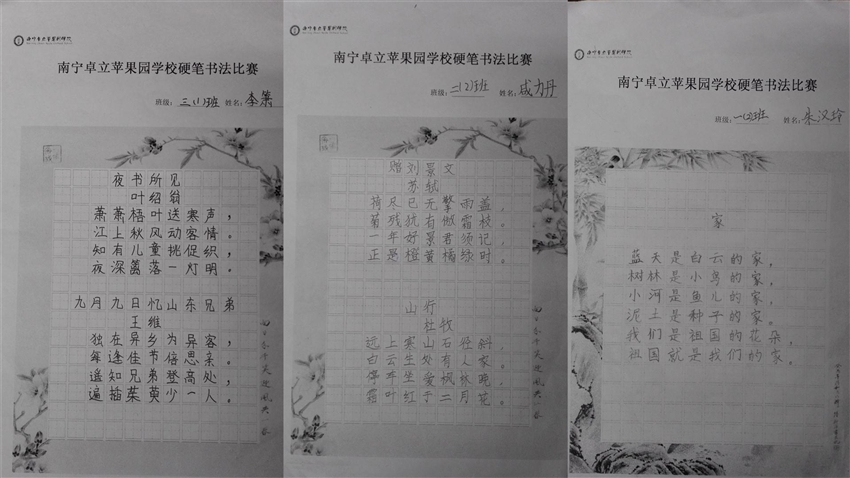 南宁卓立苹果园学校硬笔书法比赛
班级：三（1）班 姓名：李箫
夜书所见
叶绍翁
萧萧梧叶送寒声，
江上秋风动客情。
知有儿童挑促织，
夜深篱落一灯明。
九月九日忆山东兄弟
王维
独在异乡为异客，
每逢佳节倍思亲。
遥知兄弟登高处，
遍插茱萸少一人。
南宁卓立苹果园学校硬笔书法比赛
班级：二（2）班 姓名：成力丹
赠刘景文
苏轼
荷尽已无擎雨盖，
菊残犹有傲霜枝。
一年好景君须记，
正是橙黄橘绿时。
山行
杜牧
远上寒山石径斜，
白云生处有人家。
停车坐爱枫林晚，
霜叶红于二月花。
南宁卓立苹果园学校硬笔书法比赛
班级：一（2）班 姓名：朱汉玲
家
蓝天是白云的家，
树林是小鸟的家，
小河是鱼儿的家，
泥土是种子的家。
我们是祖国的花朵，
祖国就是我们的家。